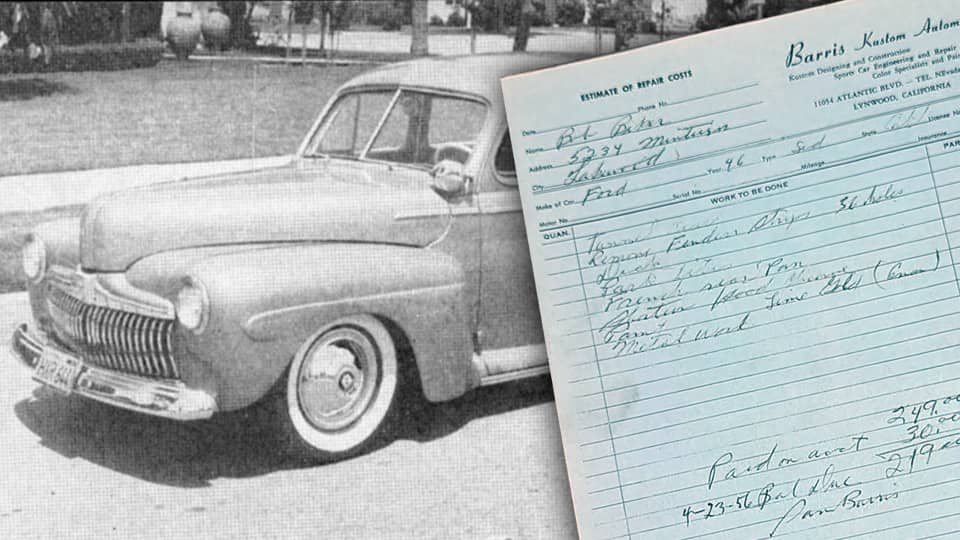 Barris Kustom Autom
Kustom Designing and Construction
Sports Car Engineering and Repair
Color Specialists and Pai
11054 ATLANTIC BLVD. — TEL. NEvada
LYNWOOD, CALIFORNIA
ESTIMATE OF REPAIR COSTS
Date Phone No.
Name Bob Baker
Address 5234 Minturn
City Lakewood State Calif License No
Make of Car Ford Year 46 Type Sed Insurance
Motor No. Serial No. Mileage
QUAN. WORK TO BE DONE PAR
Tunnel
Remove Fender Strips 36 holes
Deck
Park
French rear Pan
Hood
Paint Lime Gold
Metal work
249.00
Paid on acct 30.00
4-23-56 Bal Due 219.00
Sam Barris